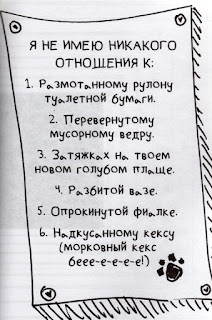 Я НЕ ИМЕЮ НИКАКОГО
ОТНОШЕНИЯ К:
1. Размотанному рулону
туалетной бумаги.
2. Перевернутому
мусорному ведру.
3. Затяжках на твоем
новом голубом плаще.
4. Разбитой вазе.
5. Опрокинутой фиалке.
6. Надкусанному кексу
(морковный кекс
беее-е-е-е-е!)